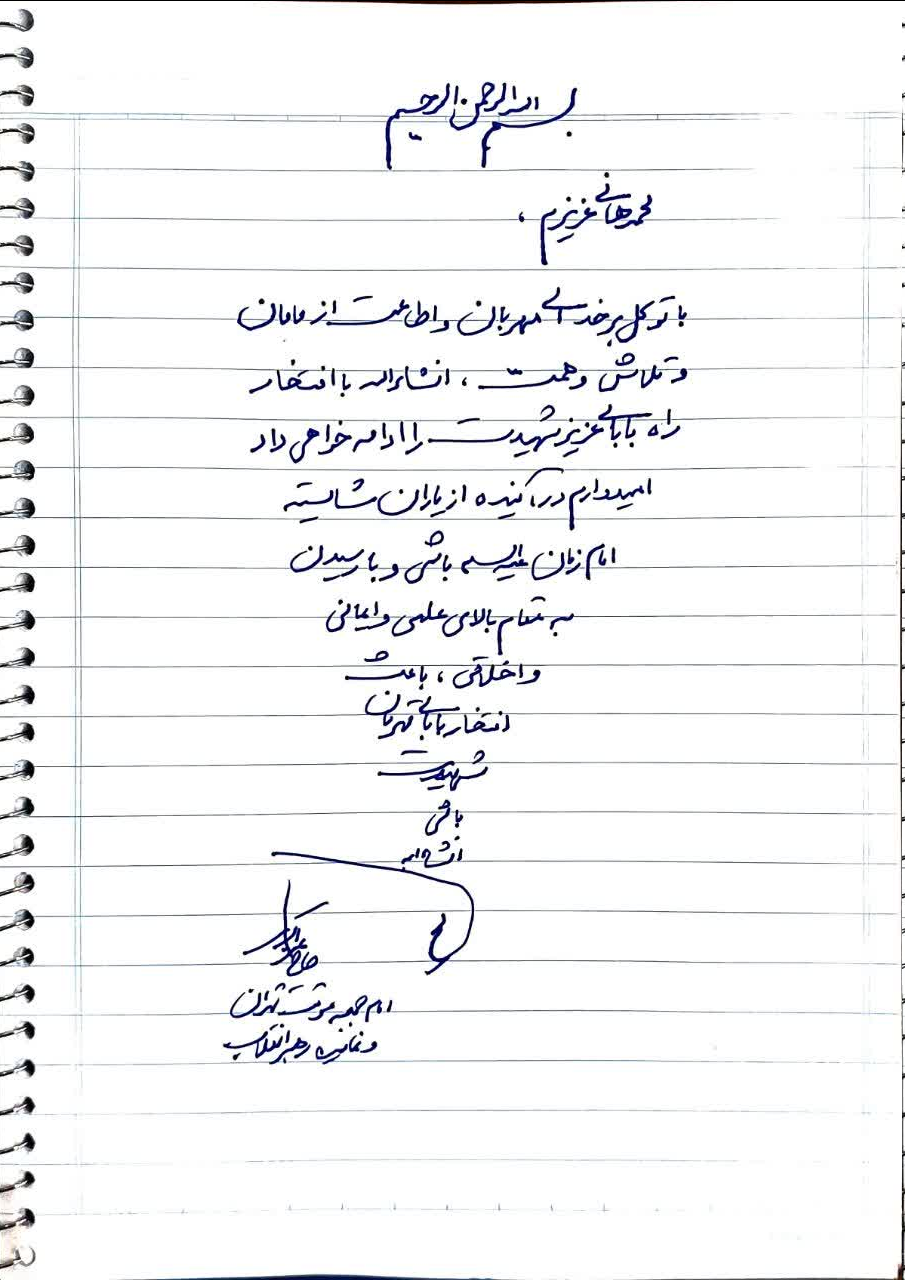 بسم الله الرحمن الرحیم
محمدهانی عزیزم ،
با توکل بر خدای مهربان و اطاعت از مامان
و تلاش و همت ، انشاءالله با افتخار
راه بابای عزیز شهیدت را ادامه خواهی داد
امیدوارم در آینده از یاران شایسته
امام زمان علیه السلام باشی و با رسیدن
به مقام بالای علمی و ایمانی
و اخلاقی ، باعث
افتخار بابای قهرمان
شهیدت
باشی
انشاءالله
حاج اکبری
امام جمعه موقت تهران
و نماینده رهبر انقلاب